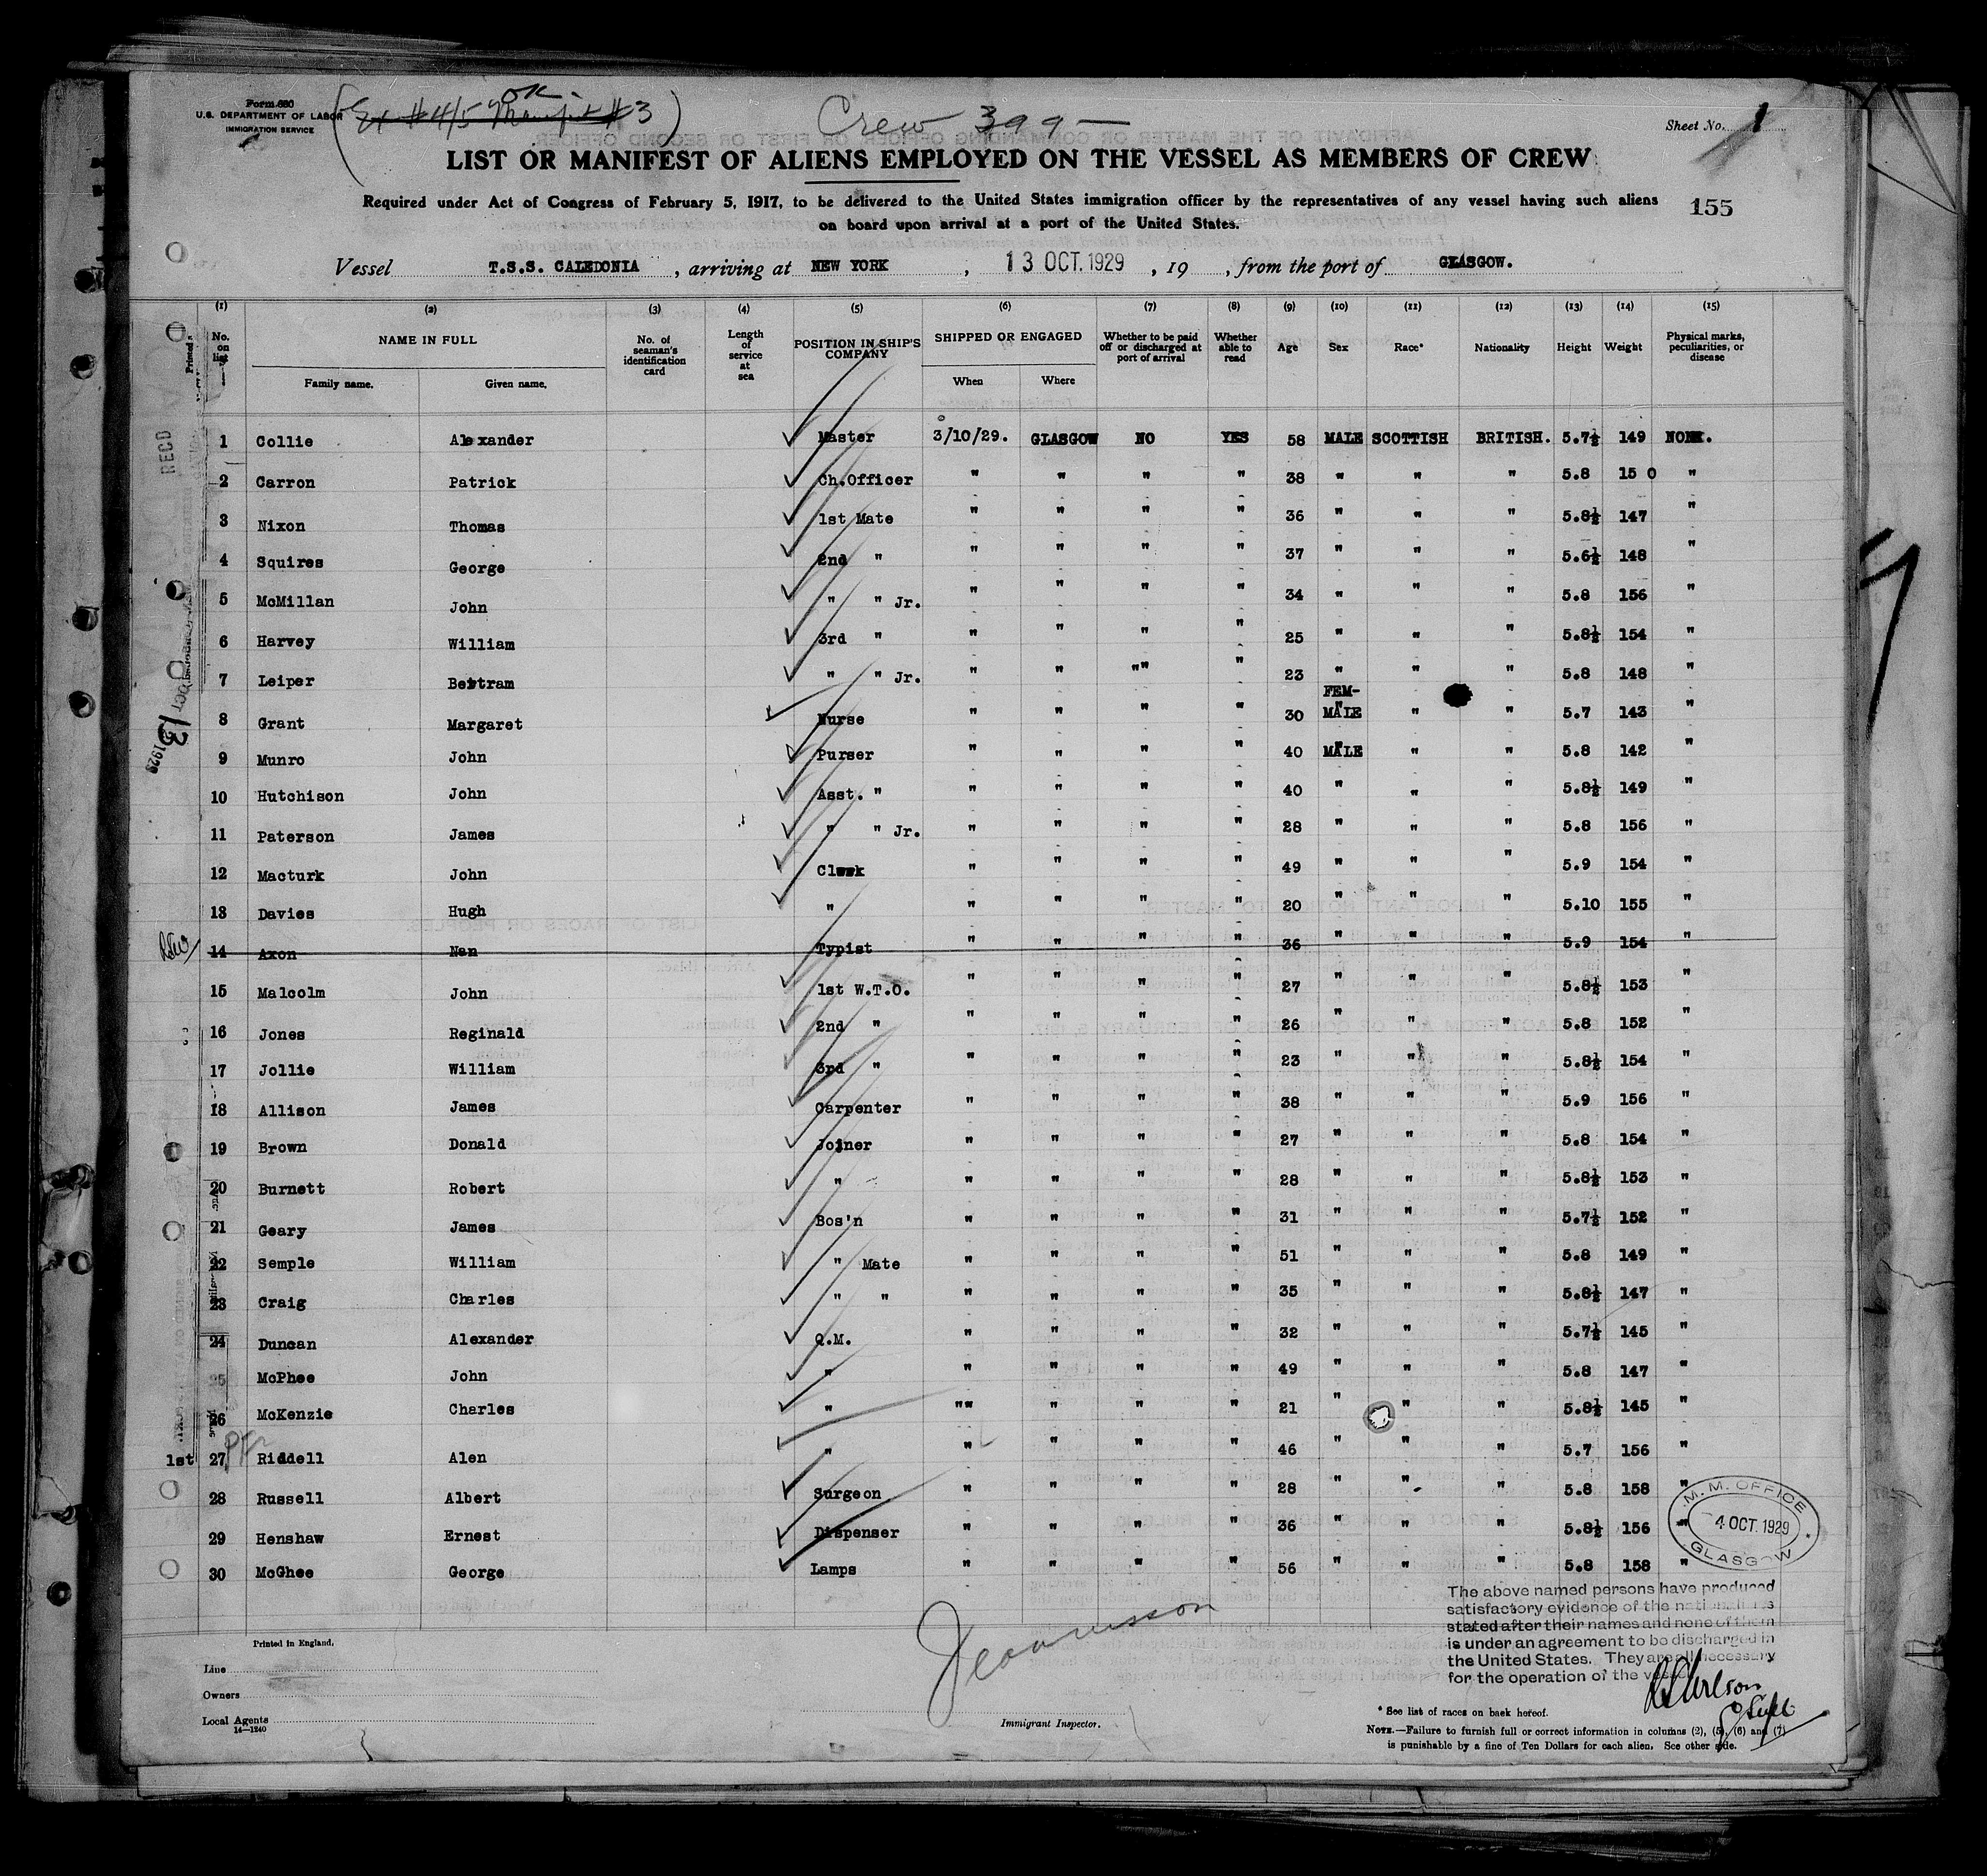 Form 680
U.S. DEPARTMENT OF LABOR
IMMIGRATION SERVICE
OK
Crew 399 —
Sheet No. 1
LIST OR MANIFEST OF ALIENS EMPLOYED ON THE VESSEL AS MEMBERS OF CREW
Required under Act of Congress of February 5, 1917, to be delivered to the United States immigration officer by the representatives of any vessel having such aliens
on board upon arrival at a port of the United States.
155
Vessel T.S.S. CALEDONIA , arriving at NEW YORK , 13 OCT. 1929 , 19 , from the port of GLASGOW.
(1) (2) (3) (4) (5) (6) (7) (8) (9) (10) (11) (12) (13) (14) (15)
No. on list NAME IN FULL Family name. Given name. No. of seaman's identification card Length of service at sea POSITION IN SHIP'S COMPANY SHIPPED OR ENGAGED When Where Whether to be paid off or discharged at port of arrival Whether able to read Age Sex Race* Nationality Height Weight Physical marks, peculiarities, or disease
1 Collie Alexander Master 3/10/29. GLASGOW NO YES 58 MALE SCOTTISH BRITISH. 5.7½ 149 NONE.
2 Carron Patrick Ch.Officer " " " " 38 " " " 5.8 150 "
3 Nixon Thomas 1st Mate " " " " 36 " " " 5.8½ 147 "
4 Squires George 2nd " " " " " 37 " " " 5.6½ 148 "
5 McMillan John " " Jr. " " " " 34 " " " 5.8 156 "
6 Harvey William 3rd " " " " " 25 " " " 5.8½ 154 "
7 Leiper Bertram " " Jr. " " "" " 23 " " " 5.8 148 "
8 Grant Margaret Nurse " " " " 30 FEM-MALE " " 5.7 143 "
9 Munro John Purser " " " " 40 MALE " " 5.8 142 "
10 Hutchison John Asst. " " " " " 40 " " " 5.8½ 149 "
11 Paterson James " " Jr. " " " " 28 " " " 5.8 156 "
12 Macturk John Clerk " " " " 49 " " " 5.9 154 "
13 Davies Hugh " " " " " 20 " " " 5.10 155 "
14 Axon Nan Typist " " " " 36 " " " 5.9 154 "
15 Malcolm John 1st W.T.O. " " " " 27 " " " 5.8½ 153 "
16 Jones Reginald 2nd " " " " " 26 " " " 5.8 152 "
17 Jollie William 3rd " " " " " 23 " " " 5.8½ 154 "
18 Allison James Carpenter " " " " 38 " " " 5.9 156 "
19 Brown Donald Joiner " " " " 27 " " " 5.8 154 "
20 Burnett Robert " " " " " 28 " " " 5.8½ 153 "
21 Geary James Bos'n " " " " 31 " " " 5.7½ 152 "
22 Semple William " Mate " " " " 51 " " " 5.8 149 "
23 Craig Charles " " " " " " 35 " " " 5.8½ 147 "
24 Duncan Alexander Q.M. " " " " 32 " " " 5.7½ 145 "
25 McPhee John " " " " " 49 " " " 5.8 147 "
26 McKenzie Charles " "" " " " 21 " " " 5.8½ 145 "
1st 27 Riddell Alen " " " " " 46 " " " 5.7 156 "
28 Russell Albert Surgeon " " " " 28 " " " 5.8 158 "
29 Henshaw Ernest Dispenser " " " " 36 " " " 5.8½ 156 "
30 McGhee George Lamps " " " " 56 " " " 5.8 158 "
M.M. OFFICE
4 OCT. 1929
GLASGOW
RECD
13 OCT 1929
The above named persons have produced
satisfactory evidence of the nationalities
stated after their names and none of them
is under an agreement to be discharged in
the United States. They are all necessary
for the operation of the vessel
Printed in England.
Line
Owners
Local Agents
14—1240
Immigrant Inspector.
* See list of races on back hereof.
NOTE.—Failure to furnish full or correct information in columns (2), (5), (6) and (7)
is punishable by a fine of Ten Dollars for each alien. See other side.